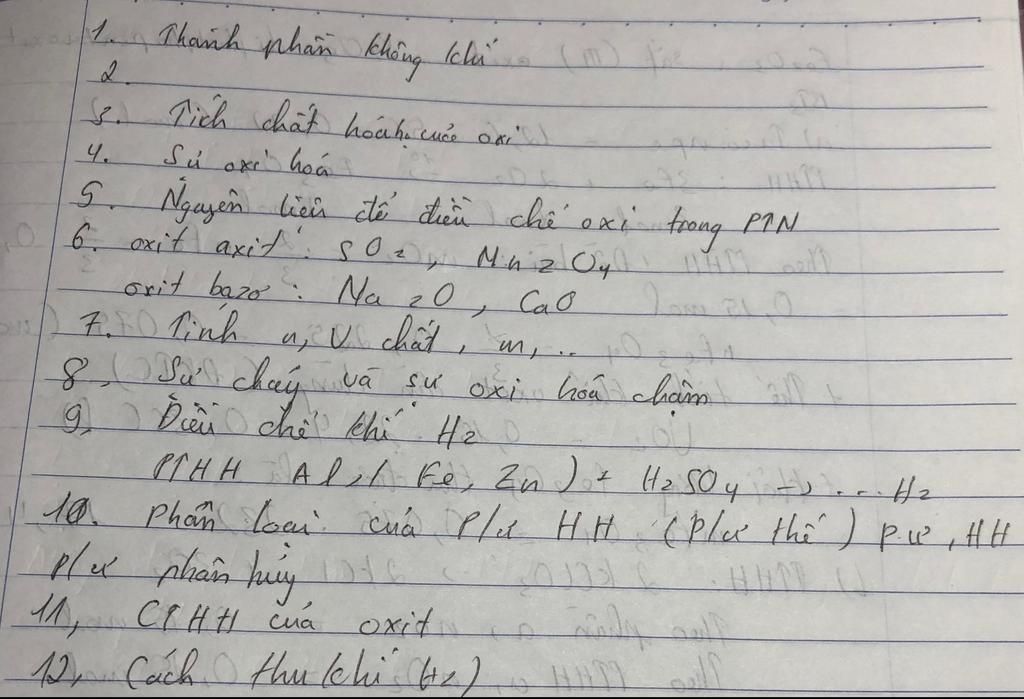 1. Thành phần không khí
2.
3. Tích chất hoá h. của oxi
4. Sự oxi hoá
5. Nguyên liệu để điều chế oxi trong PTN
6. oxit axit : SO2, Mn2O4
oxit bazơ : Na2O, CaO
7. Tính n, V chất, m, ..
8, Sự cháy và sự oxi hoá chậm
9, Điều chế khí H2
PTHH Al, ( Fe, Zn ) + H2SO4 → ... H2
10. phân loại của p/ư HH (p/ư thế) p.ư, HH
p/ư phân hủy
11, CTHH của oxit
12, Cách thu khí (H2)